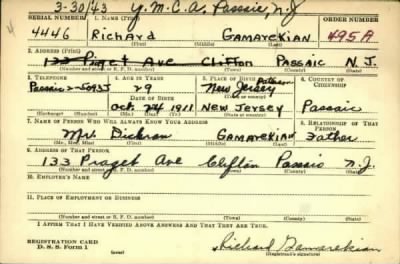 3-30/43 Y.M.C.A. Passaic, N.J
SERIAL NUMBER 1. NAME (Print) ORDER NUMBER
4446 Richard Gamarekian 495A
(First) (Middle) (Last)
2. ADDRESS (Print)
133 Piaget Ave Clifton Passaic N.J.
(Number and street or R. F. D. number) (Town) (County) (State)
3. TELEPHONE 4. AGE IN YEARS 5. PLACE OF BIRTH 6. COUNTRY OF CITIZENSHIP
Passaic 2- 29 Paterson New Jersey
DATE OF BIRTH
Oct. 24 1911 New Jersey Passaic
(Exchange) (Number) (Mo.) (Day) (Yr.) (State or country)
7. NAME OF PERSON WHO WILL ALWAYS KNOW YOUR ADDRESS 8. RELATIONSHIP OF THAT PERSON
Mr. Dickran Gamarekian Father
(Mr., Mrs., Miss) (First) (Middle) (Last)
9. ADDRESS OF THAT PERSON
133 Praget Ave Clifton Passic N.J.
(Number and street or R. F. D. number) (Town) (County) (State)
10. EMPLOYER'S NAME
11. PLACE OF EMPLOYMENT OR BUSINESS
(Number and street or R. F. D. number) (Town) (County) (State)
I AFFIRM THAT I HAVE VERIFIED ABOVE ANSWERS AND THAT THEY ARE TRUE.
REGISTRATION CARD
D. S. S. Form 1 (over) Richard Gamarekian
(Registrant's signature)